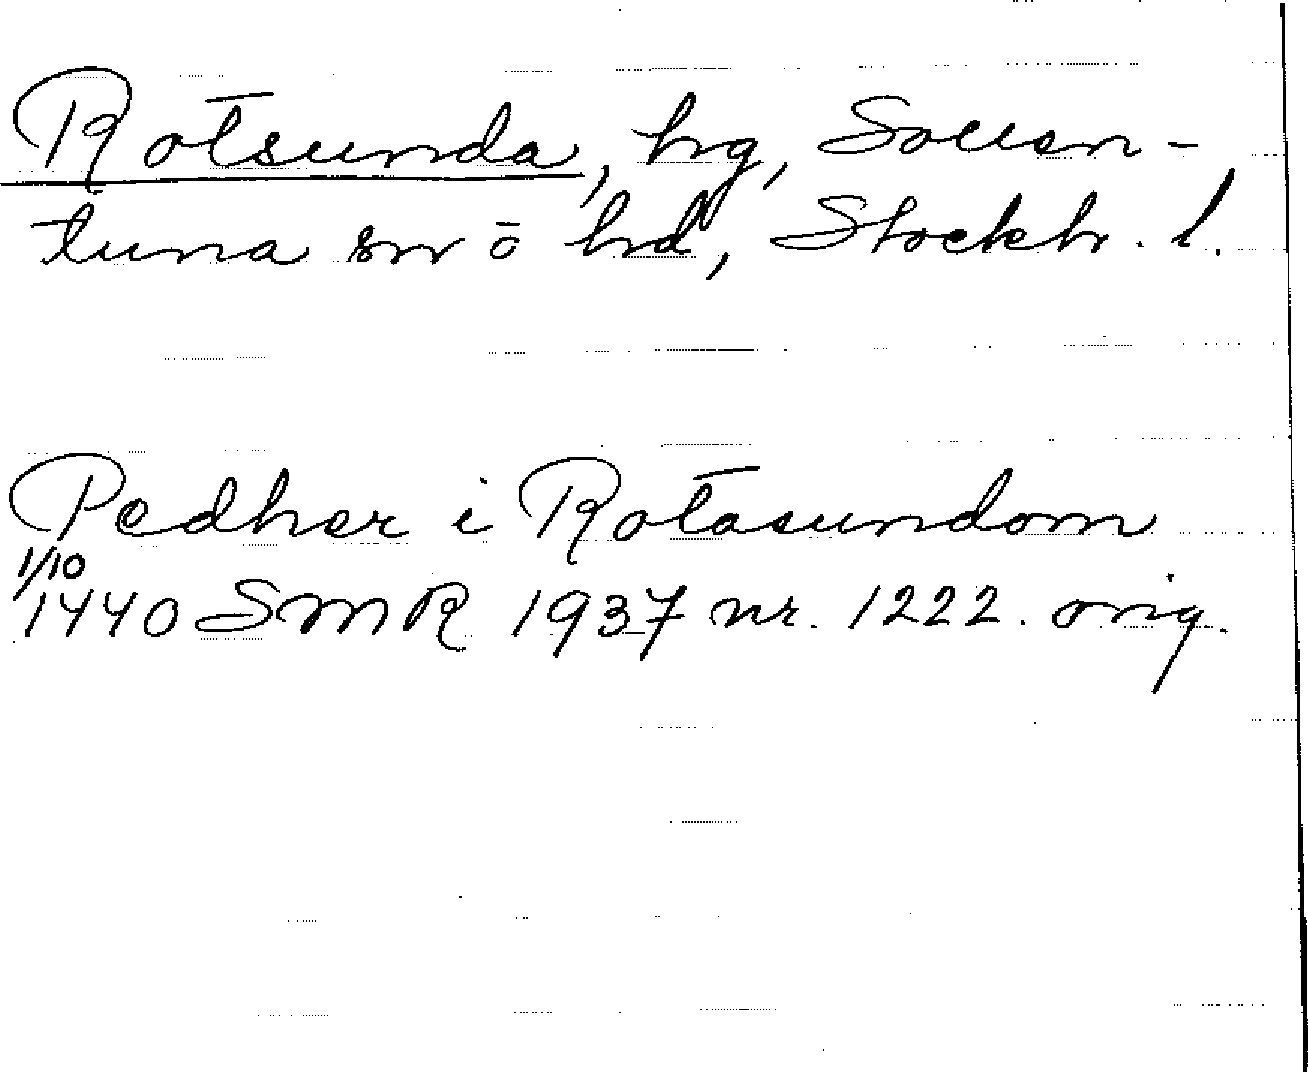 Rotsunda, hg, Sollen-
tuna sn ō hd, Stockh. l.
Pedher i Rotasundom
1/10
1440 SMR 1937 nr. 1222. orig.